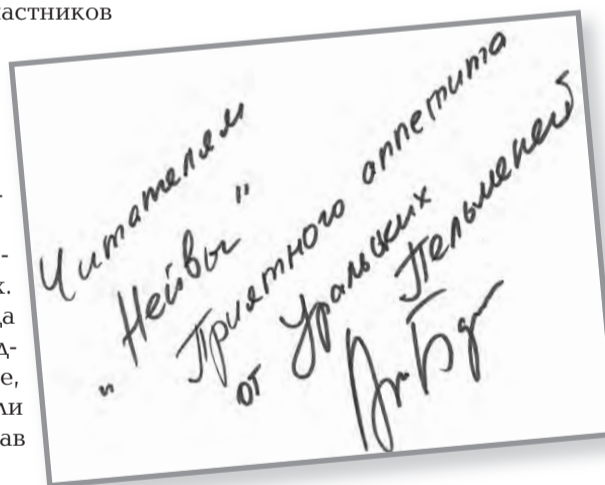 частников
х.
да
д-
е,
ли
ав
Читателям
"Нейвы"
Приятного аппетита
от Уральских
Пельменей